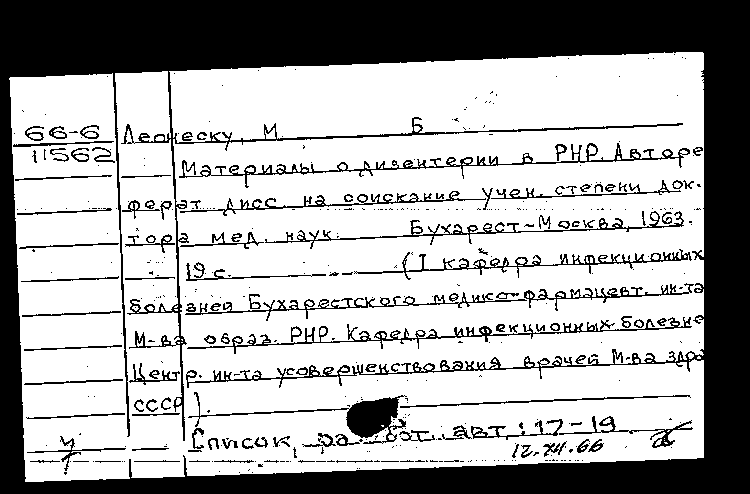 66-6 Леонеску, М. Б
11562
Материалы о дизентерии в РНР. Авторе
ферат дисс. на соискание учен. степени док.
тора мед. наук. Бухарест-Москва, 1963.
19 с. (I кафедра инфекционных
болезней Бухарестского медико-фармацевт. ин-та
М-ва образ. РНР. Кафедра инфекционных болезне
Центр. ин-та усовершенствования врачей М-ва здра
СССР).
Список, работ авт.: 17-19
12.XII.66